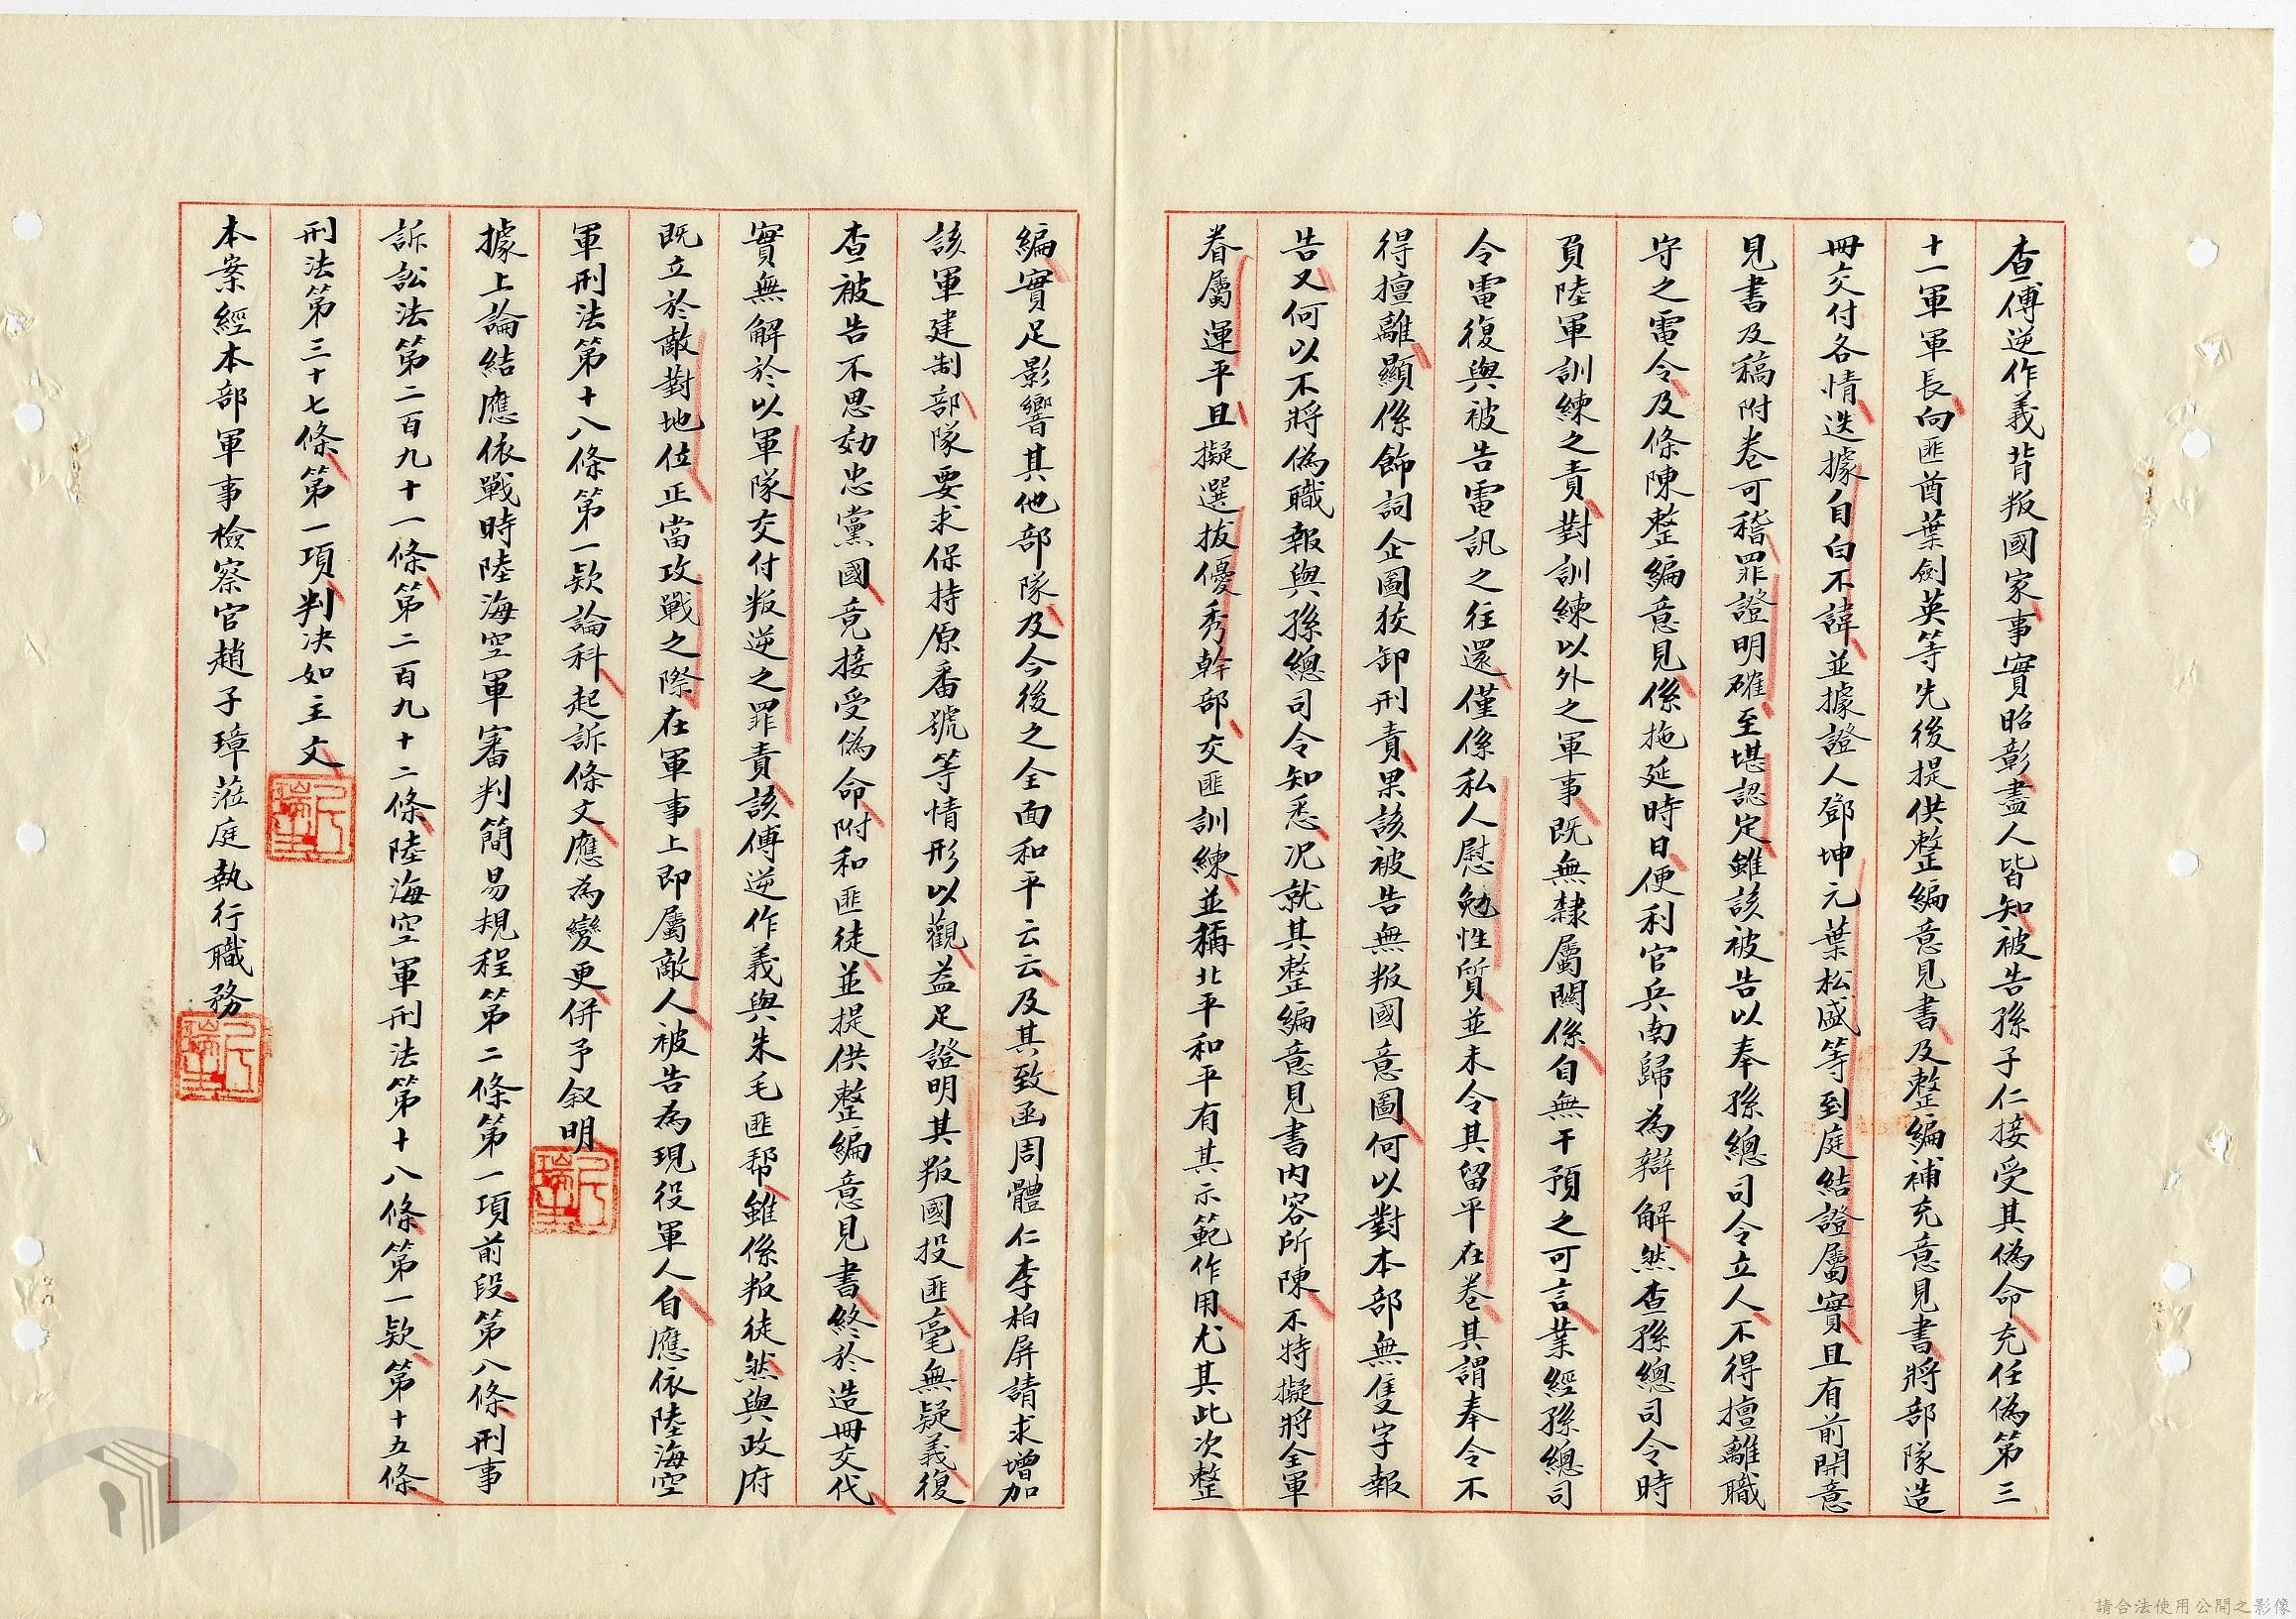 查傅逆作義背叛國家事實昭彰盡人皆知被告孫子仁接受其偽命充任偽第三
十一軍軍長向匪酋葉劍英等先後提供整編意見書及整編補充意見書將部隊造
冊交付各情迭據自白不諱並據證人鄧坤元葉松盛等到庭結證屬實且有前開意
見書及稿附卷可稽罪證明確至堪認定雖該被告以奉孫總司令立人不得擅離職
守之電令及條陳整編意見係拖延時日便利官兵南歸為辯解然查孫總司令時
負陸軍訓練之責對訓練以外之軍事既無隸屬關係自無干預之可言業經孫總司
令電復與被告電訊之往還僅係私人慰勉性質並未令其留平在卷其謂奉令不
得擅離顯係飾詞企圖狡卸刑責果該被告無叛國意圖何以對本部無隻字報
告又何以不將偽職報與孫總司令知悉況就其整編意見書內容所陳不特擬將全軍
眷屬運平且擬選拔優秀幹部交匪訓練並稱北平和平有其示範作用尤其此次整
編實足影響其他部隊及今後之全面和平云云及其致函周體仁李柏屏請求增加
該軍建制部隊要求保持原番號等情形以觀益足證明其叛國投匪毫無疑義復
查被告不思効忠黨國竟接受偽命附和匪徒並提供整編意見書終於造冊交代
實無解於以軍隊交付叛逆之罪責該傅逆作義與朱毛匪幫雖係叛徒然與政府
既立於敵對地位正當攻戰之際在軍事上即屬敵人被告為現役軍人自應依陸海空
軍刑法第十八條第一款論科起訴條文應為變更併予叙明
據上論結應依戰時陸海空軍審判簡易規程第二條第一項前段第八條刑事
訴訟法第二百九十一條第二百九十二條陸海空軍刑法第十八條第一款第十五條
刑法第三十七條第一項判决如主文
本案經本部軍事檢察官趙子璋蒞庭執行職務
請合法使用公開之影像